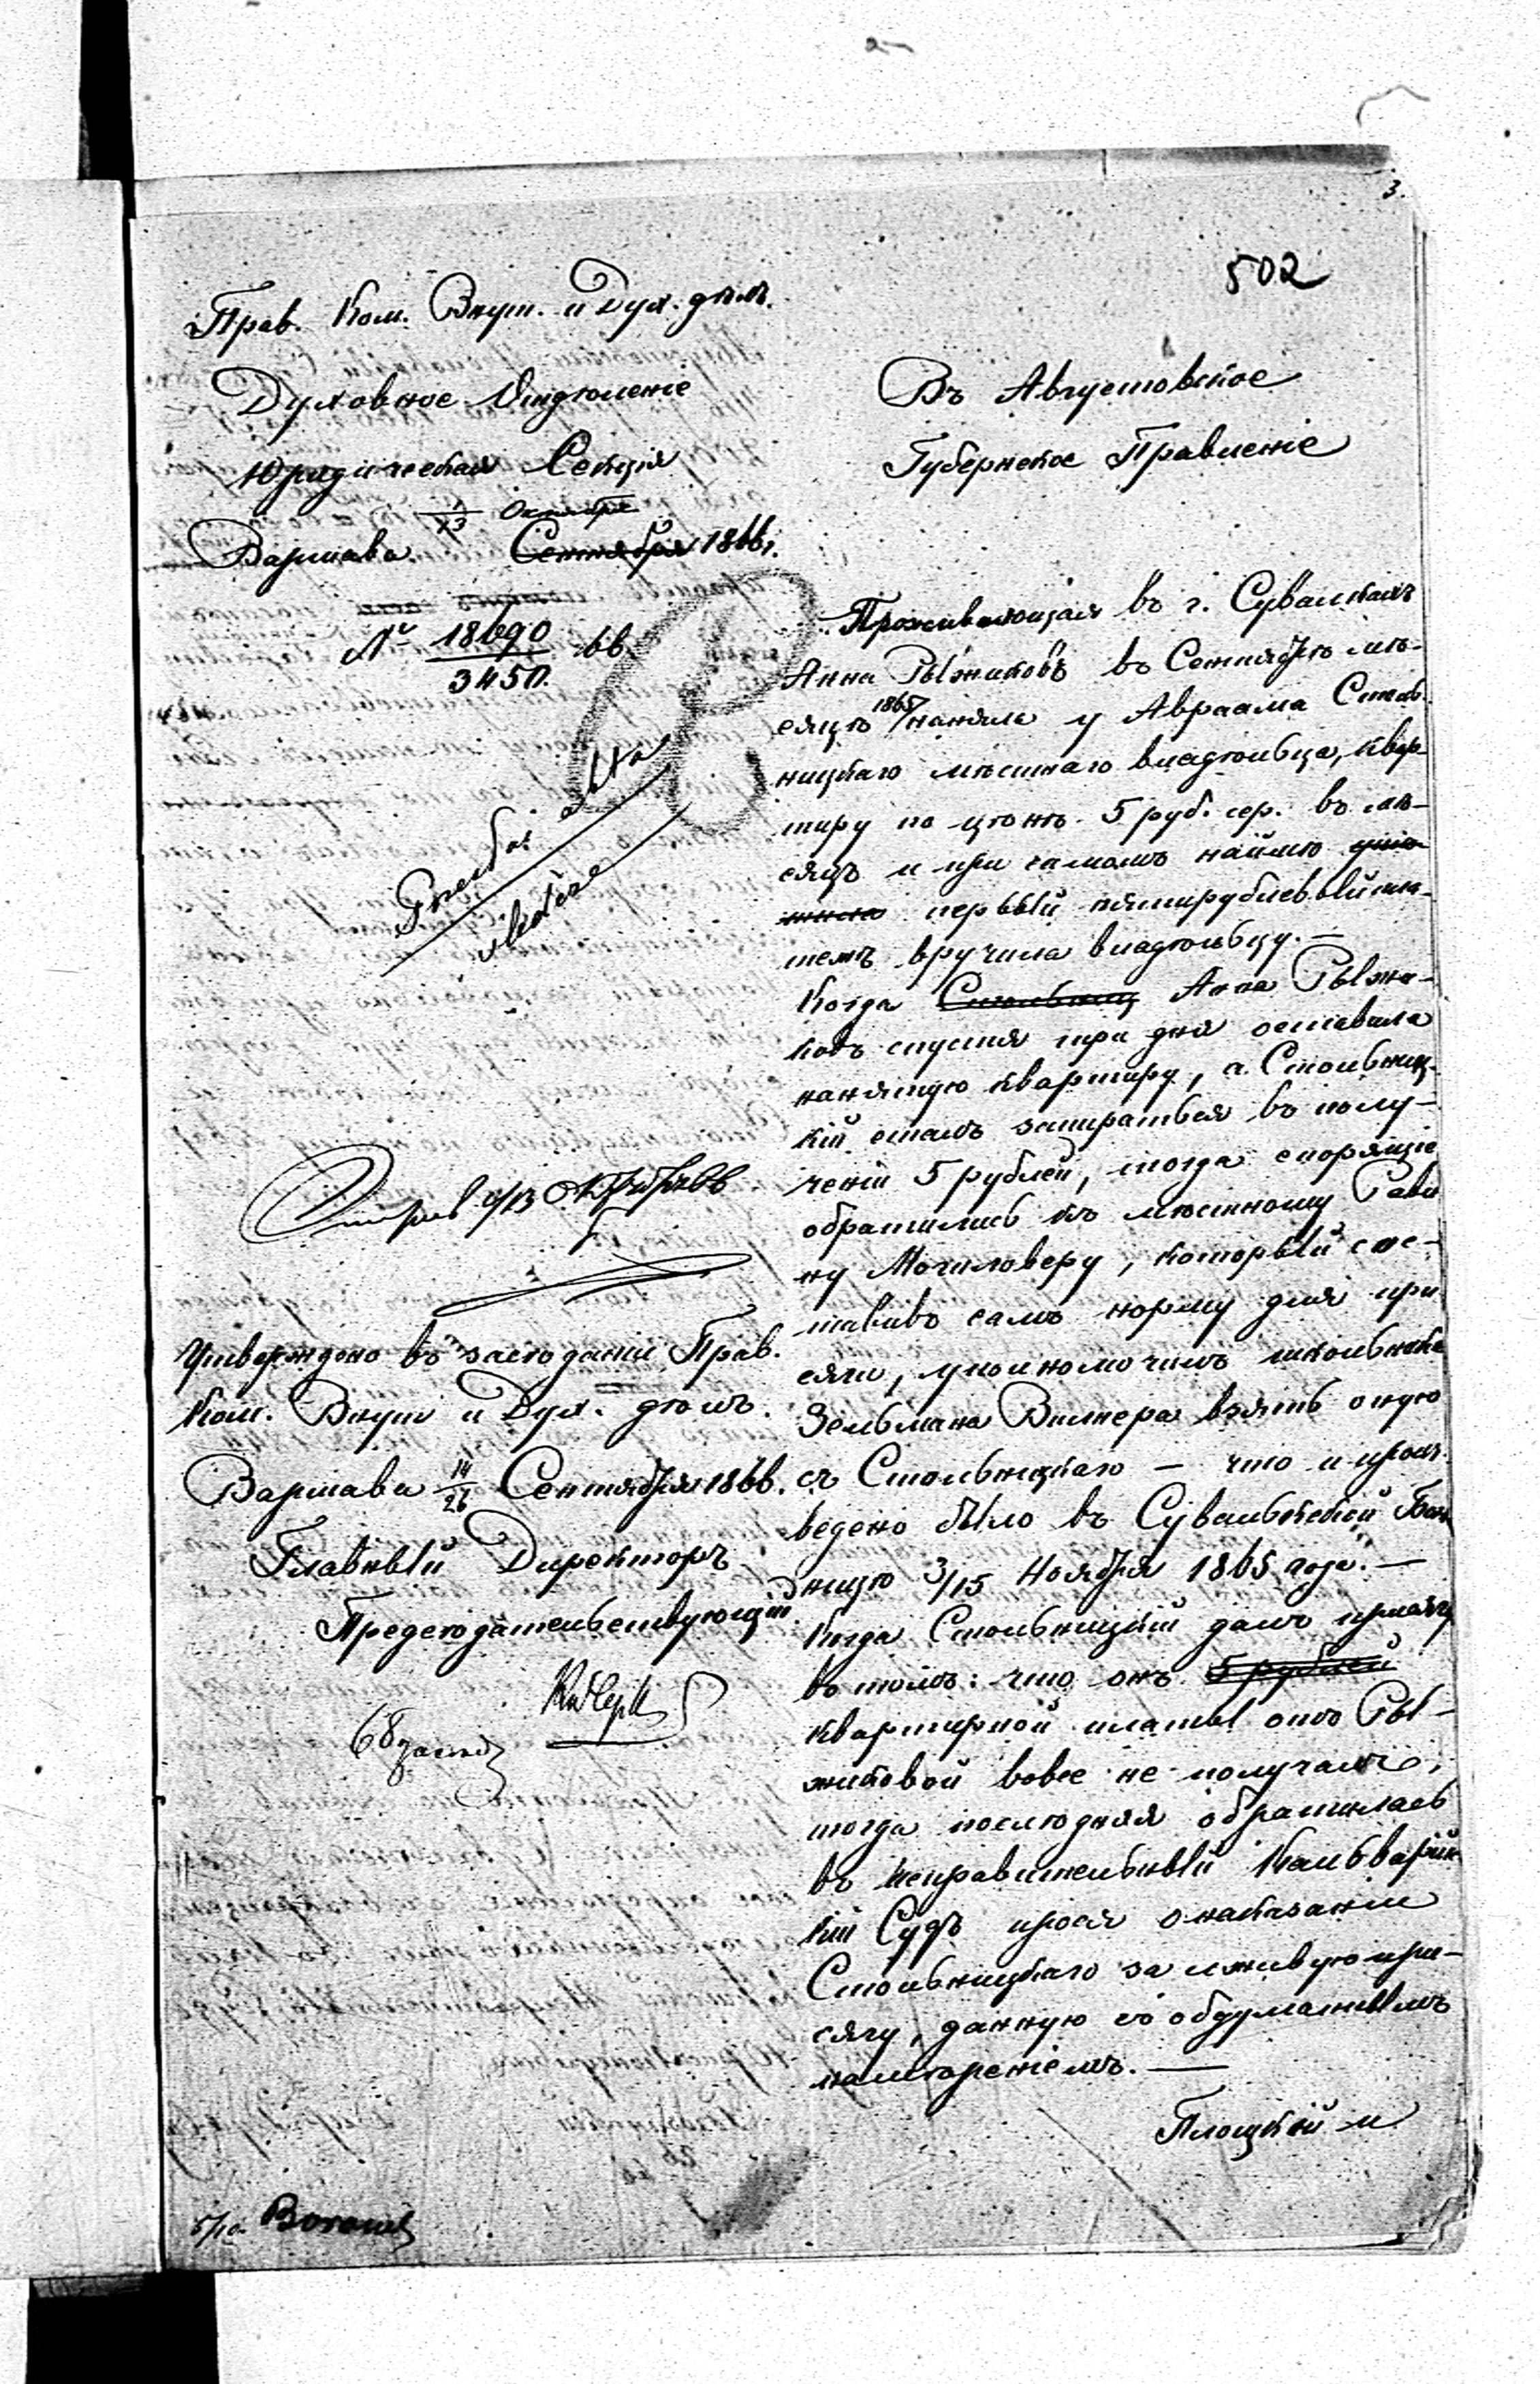 3.
502
Прав. Ком. Внут. и Дух. дѣлъ.
Духовное Отдѣленіе
Юридическая Секція
1/13 Октября
Варшава. Сентября 1866 г.
№ 18690 / 3450. 66
Въ Августовское
Губернское Правленіе
Проживающая въ г. Сувалкахъ
Анна Рыжиковъ въ Сентябрѣ мѣ-
сяцѣ 1865 наняла у Авраама Столь-
ницкаго мѣстнаго владѣльца, квар-
тиру по цѣнѣ 5 руб. сер. въ мѣ-
сяцъ и при самомъ наймѣ
первый пятирублевый пла-
тежъ вручила владѣльцу. —
Когда Стольниц Анна Рыжи-
ковъ спустя три дня оставила
нанятую квартиру, а Стольниц-
кій сталъ запираться въ полу-
ченіи 5 рублей, тогда спорящіе
обратились къ мѣстному Рави-
ну Могилеверу, который сос-
тавивъ самъ норму для при-
сяги, уполномочилъ школьника
Зельмана Вилнера взять оную
съ Стольницкаго — что и произ-
ведено было въ Сувалкской Бож-
ницѣ 3/15 Ноября 1865 года. —
Когда Стольницкій далъ присягу
въ томъ: что онъ 5 рублей
квартирной платы отъ Ры-
жиковой вовсе не получалъ,
тогда послѣдняя обратилась
въ Исправительный Кальварійс-
кій Судъ прося о наказаніи
Стольницкаго за лживую при-
сягу, данную съ обдуманнымъ
намѣреніемъ. —
Плоцкій и
Утверждено въ засѣданіи Прав.
Ком. Внут и Дух. дѣлъ.
Варшава 14/26 Сентября 1866.
Главный Директоръ
Предсѣдательствующій
68
5/10.